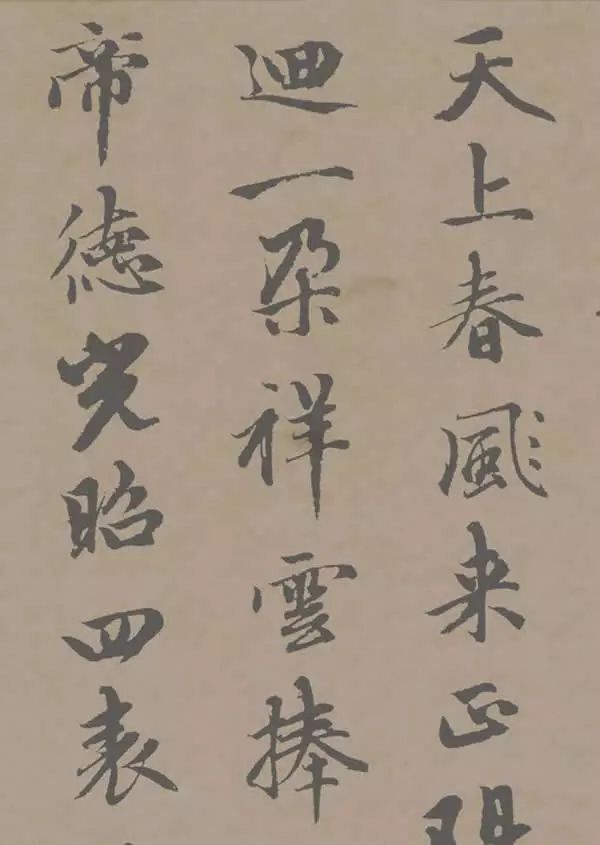 天上春風来正
迴一朵祥雲捧
帝德光昭四表